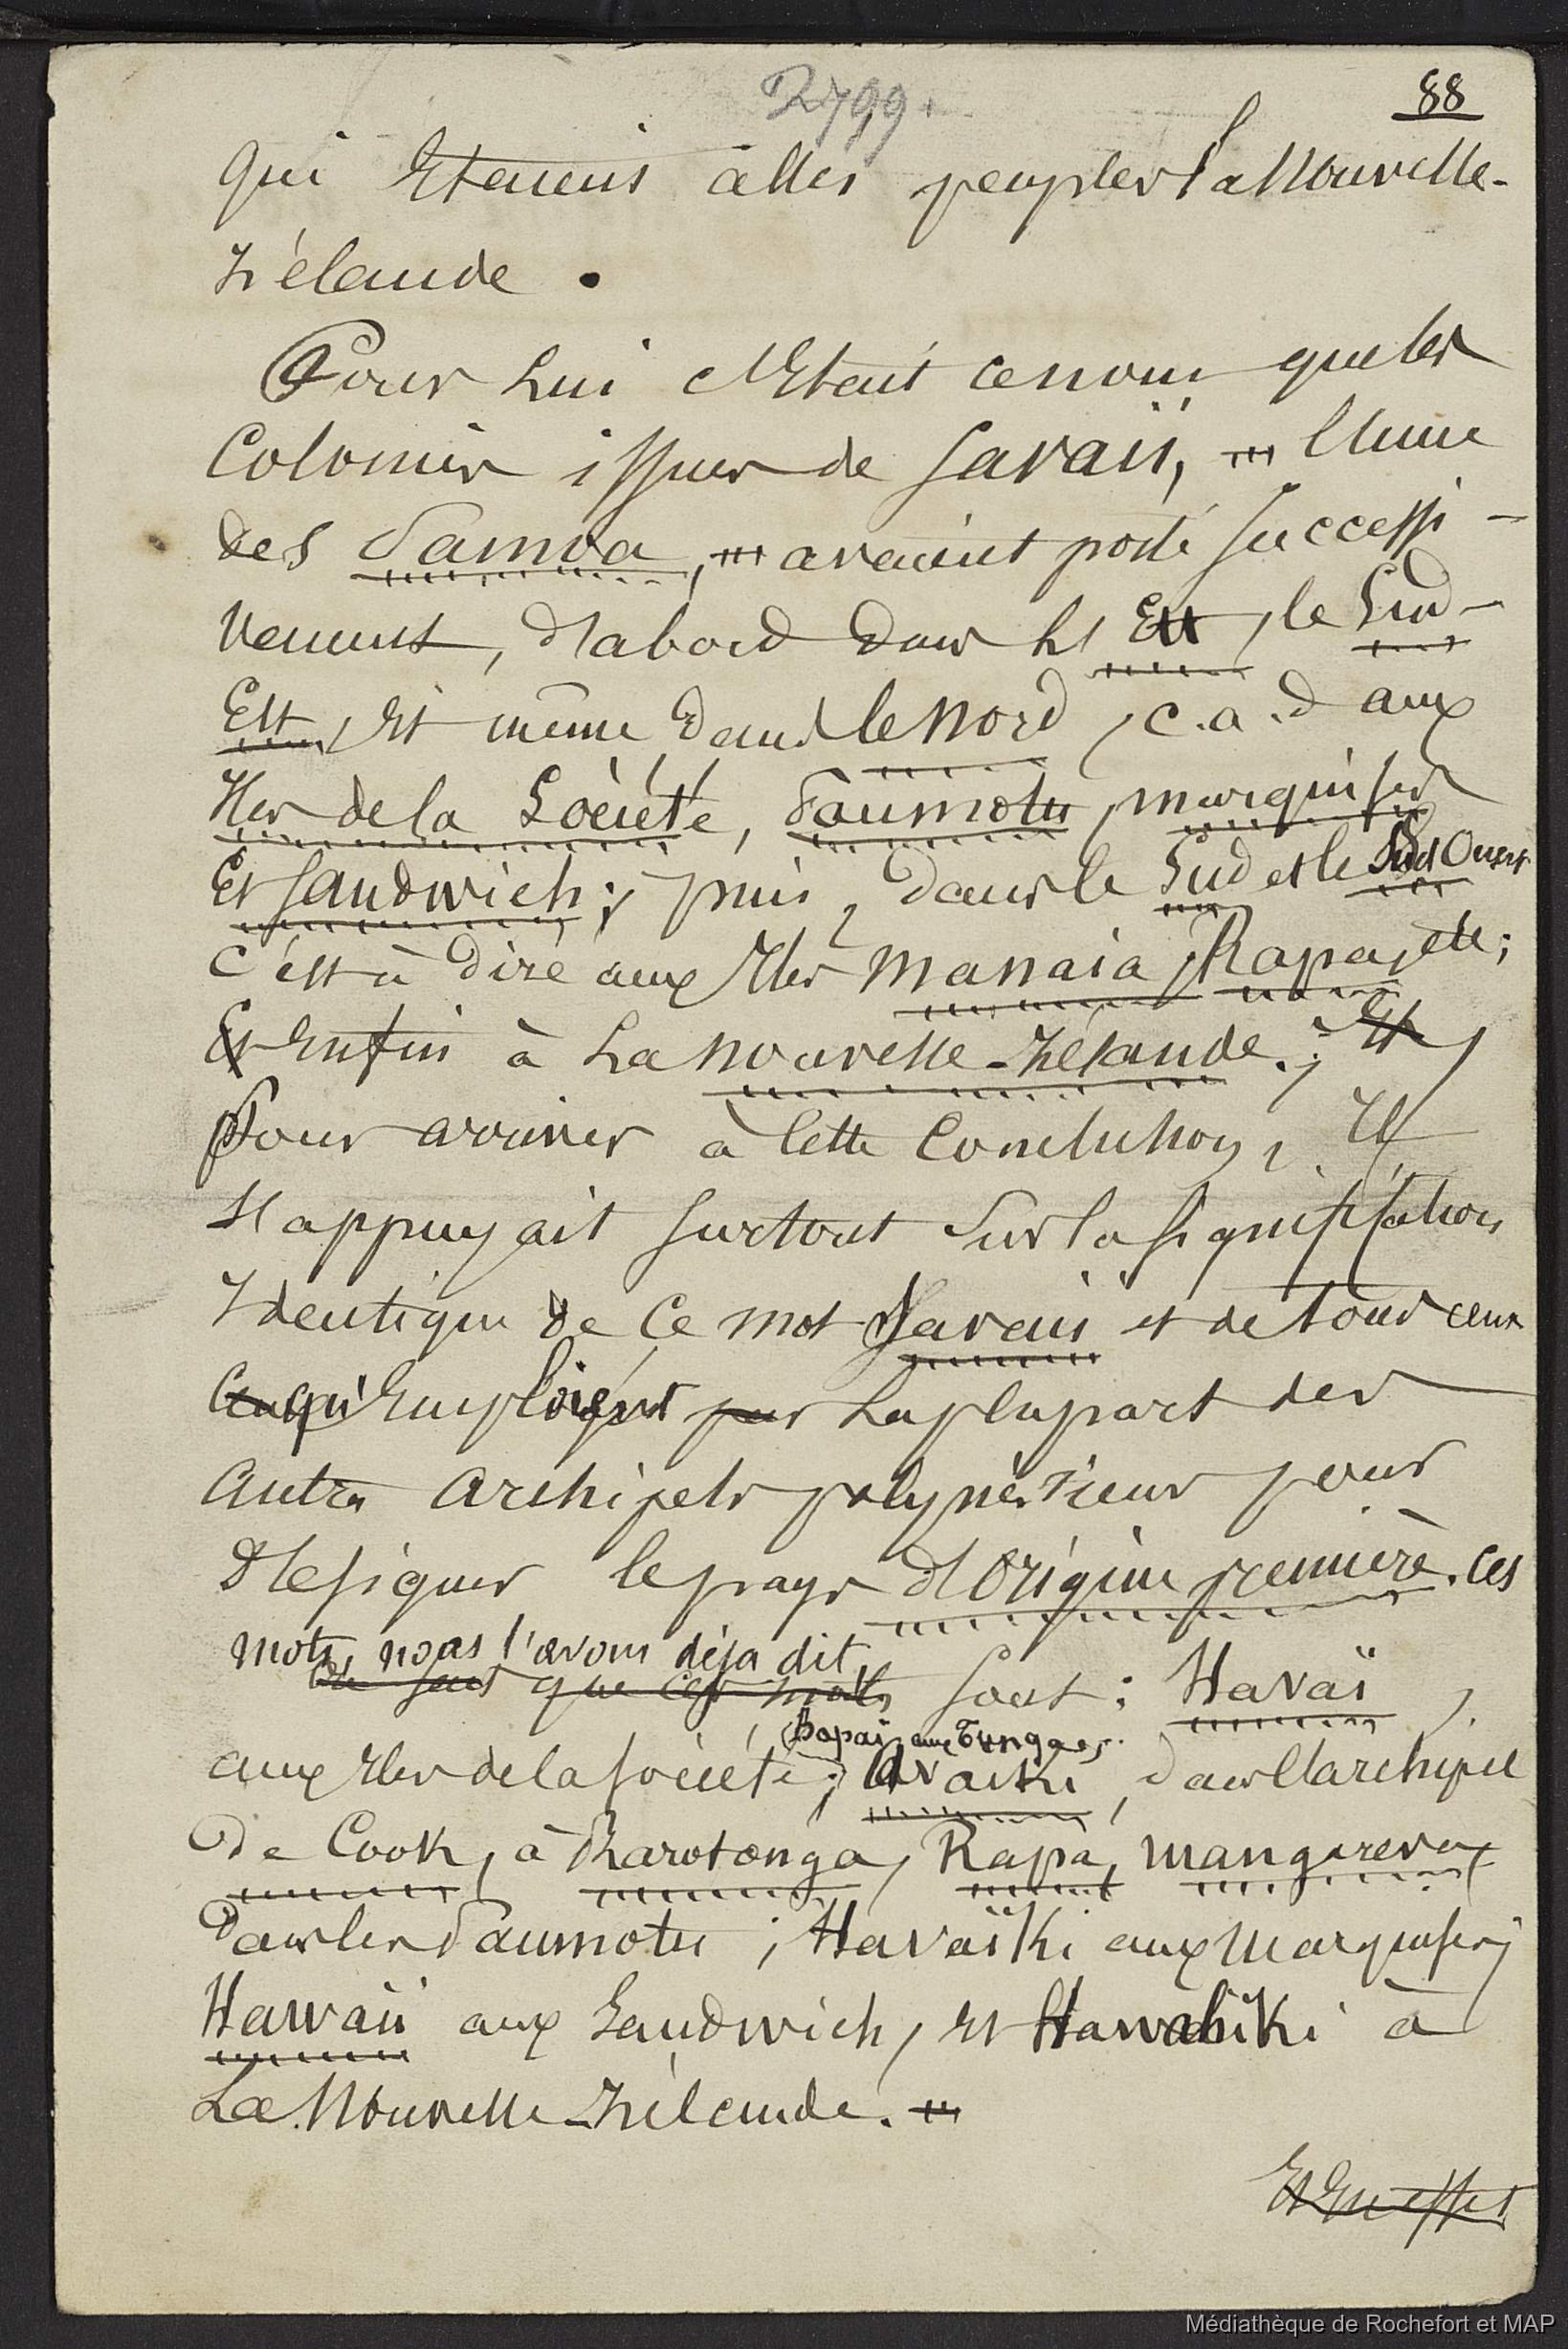 2799.
88
qui étaient allés peupler la Nouvelle-
Zélande.
Pour lui c'était ce nom que les
Colonies issues de Savaii, l'une
des Samoa, avaient porté successi-
vement, d'abord dans l'Est, le Sud-
Est, et même dans le Nord, c.a.d aux
Iles de la Société, Paumotu, marquises
Et Sandwich; puis, dans le Sud et le Sud Ouest
c'est à dire aux Iles Manaia, Rapa, etc;
Et Enfin à La Nouvelle-Zélande.; Et
Pour arriver à cette Conclusion, Il
s'appuyait surtout sur la signification
Identique de ce mot Savaii et de tous ceux
qu'employent par La plupart des
autres archipels polynésiens pour
désigner le pays d'origine première. Ces
mots, nous l'avons déja dit,
On sait que ces mots sont: Havaï,
Hapai, aux Tungas.
aux Iles de la Société; Avaiki, dans l'archipel
De Cook, à Rarotonga, Rapa, Mangareva,
Dans les Paumotu; Havaïki aux Marquises;
Hawaii aux Sandwich, et Hawahiki à
La Nouvelle-Zélande.
Et En effet
Médiathèque de Rochefort et MAP